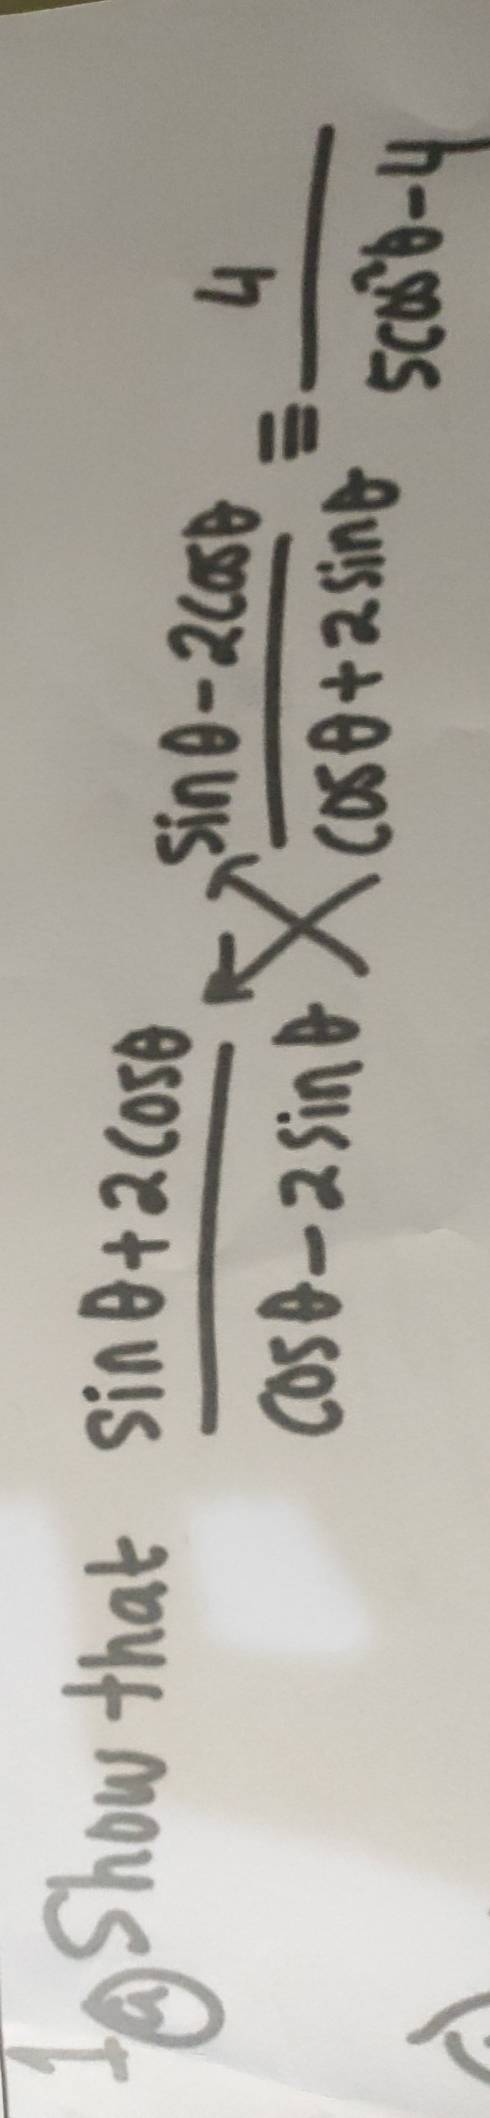 1 (a) Show that \frac{sinθ+2cosθ}{cosθ-2sinθ} \frac{sinθ-2cosθ}{cosθ+2sinθ} ≡ \frac{4}{5cos²θ-4}